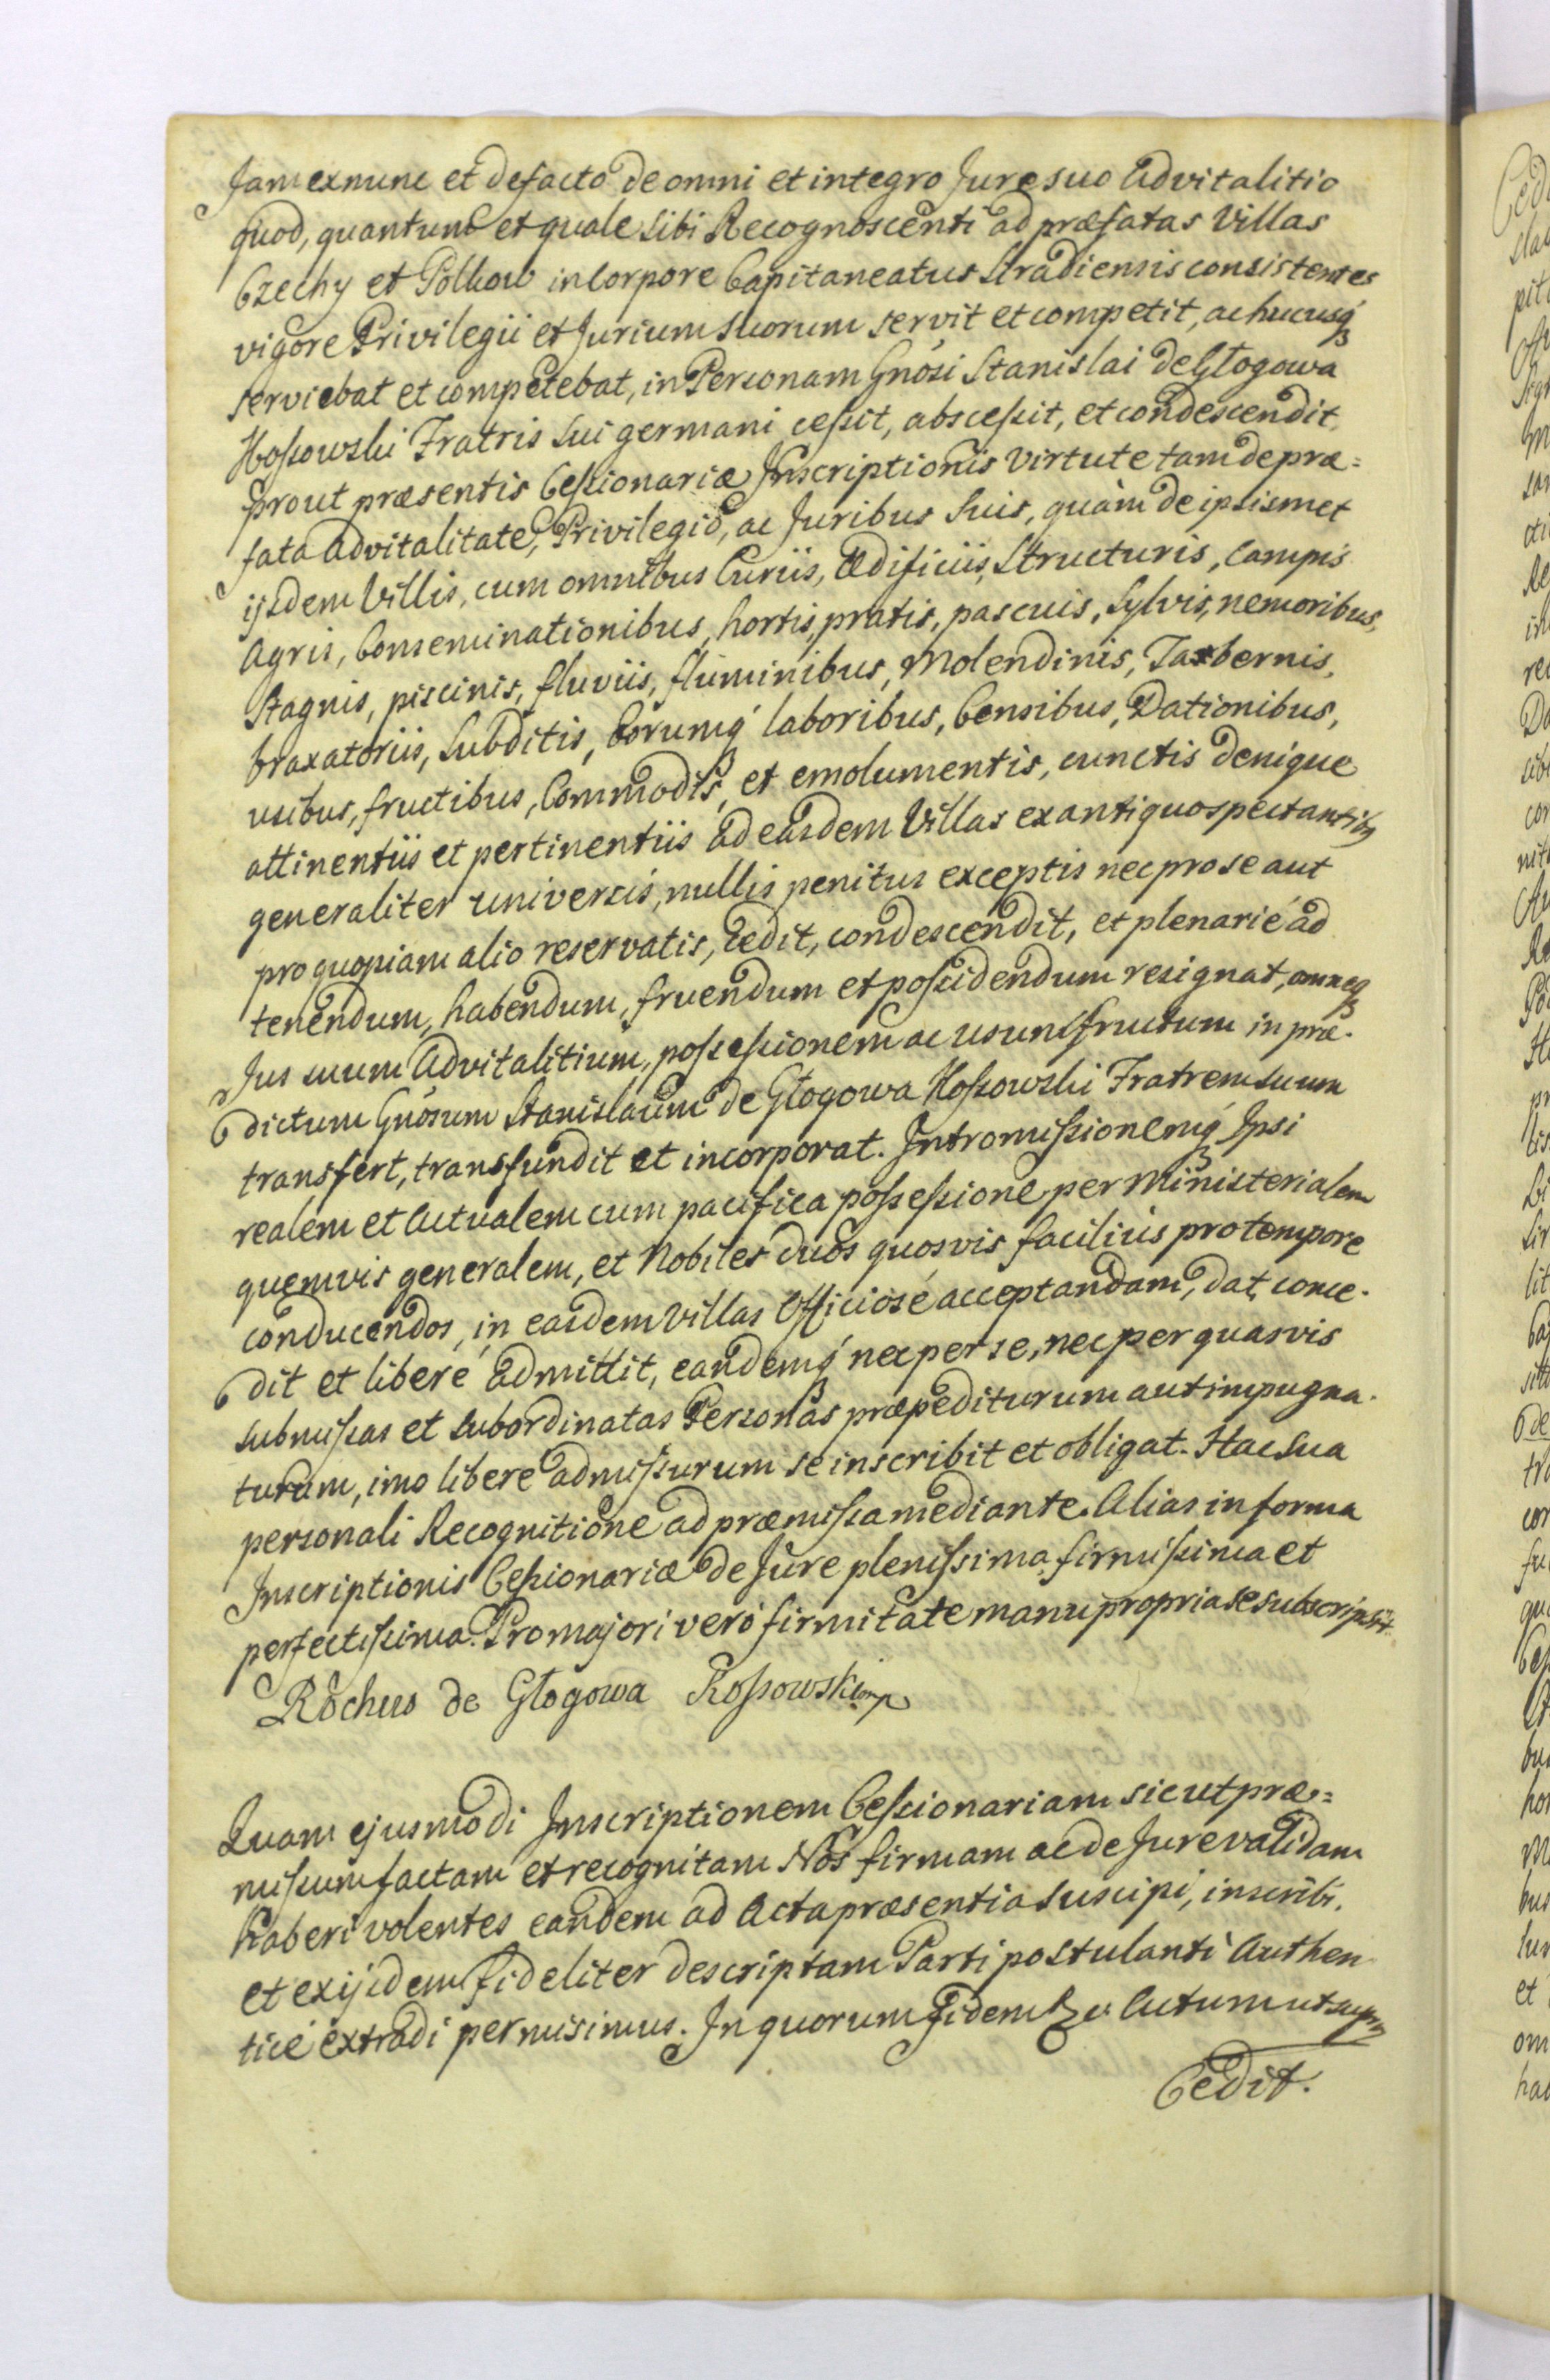 Jam ex nunc et de facto de omni et integro Jure suo Advitalitio
quod, quantum et quale sibi Recognoscenti ad præfatas Villas
Czechy et Polkow in Corpore Capitaneatus Siradiensis consistentes
vigore Privilegii et Jurium suorum servit et competit, ac hucusq́
serviebat et competebat, in Personam Gnósi Stanislai de Głogowa
Kossowski Fratris sui germani cessit, abscessit, et condescendit
prout præsentis Cessionariæ Inscriptionis virtute tam de præ=
fata Advitalitate, Privilegio, ac Juribus suis, quàm de ipsismet
ijsdem Villis, cum omnibus Curiis, Ædificiis, Structuris, campis
Agris, Conseminationibus, hortis, pratis, pascuis, sylvis, nemoribus,
Stagnis, piscinis, fluviis, fluminibus, Molendinis, Tabernis,
braxatoriis, Subditis, Eorumq́ laboribus, Censibus, Dationibus,
usibus, fructibus, Commodis, et emolumentis, cunctis denique
attinentiis et pertinentiis ad easdem Villas ex antiquo spectantibȝ
generaliter universis, nullis penitus exceptis nec pro se aut
pro quopiam alio reservatis, cedit, condescendit, et plenariè ad
tenendum, habendum, fruendum et possidendum resignat, omneq́
Jus suum Advitalitium, possessionem ac usumfructum in præ-
dictum Gnósum Stanislaum de Głogowa Kossowski Fratrem suum
transfert, transfundit et incorporat. Intromissionemq́ Ipsi
realem et Actualem cum pacifica possessione per Ministerialem
quemvis generalem, et Nobiles duos quosvis faciliùs pro tempore
conducendos, in easdem Villas Officiosè acceptandam, dat, conce-
dit et liberè admittit, eandemq́ nec per se, nec per quasvis
submissas et subordinatas Personas præpediturum aut impugna-
turum, imo libere admissurum se inscribit et obligat. Hac sua
personali Recognitione ad præmissa mediante. Alias in forma
Inscriptionis Cessionariæ de Jure plenissima, firmissima et
perfectissima. Pro majori verò firmitate manu propria se subscripsit.
Rochus de Głogowa Kossowski mp
Quam ejusmodi Inscriptionem Cessionariam sicut præ=
missum factam et recognitam Nos firmam ac de Jure validam
haberi volentes eandem ad Acta præsentia suscipi, inscribi,
et ex ijsdem fideliter descriptam Parti postulanti Authen
ticè extradi permisimus. In quorum fidem &c. Actum ut supra
Cedit.